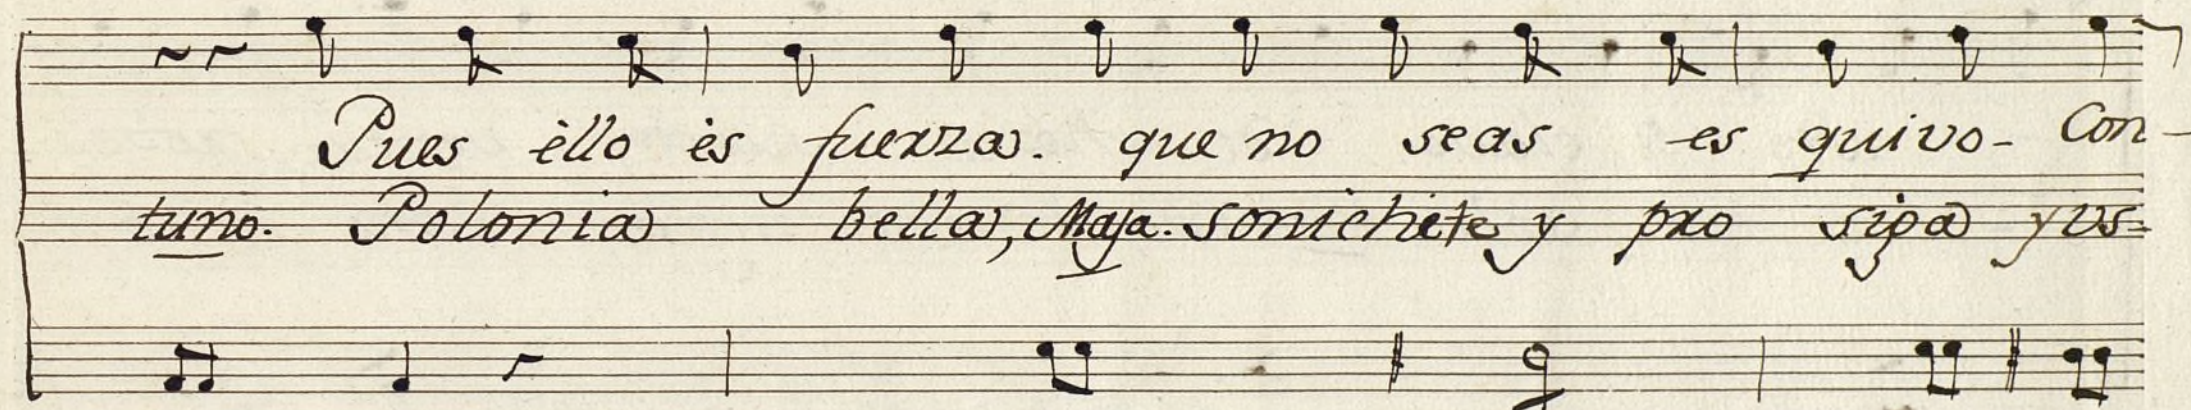 Pues èllo ès fuerza. que no seas es quivo- Con-
tuno. Polonia bella, Maja. sonichete y pro sipa y vs-